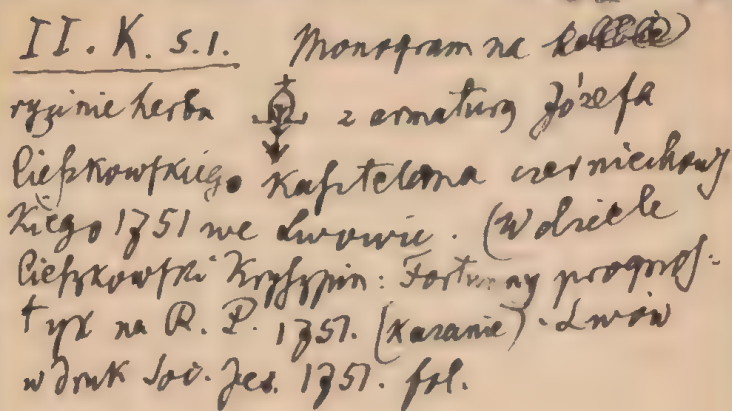 II. K. s. I. Monogram na
rycinie herbu z armaturą Józefa
Cieszkowskiego Kasztelana czerniechows
kiego 1751 we Lwowie. (W dziele
Cieszkowski Kryszpin: Fortunny prognos-
tyk na R. P. 1751. (Kazanie). Lwów
w druk Soc. Jes. 1751. fol.